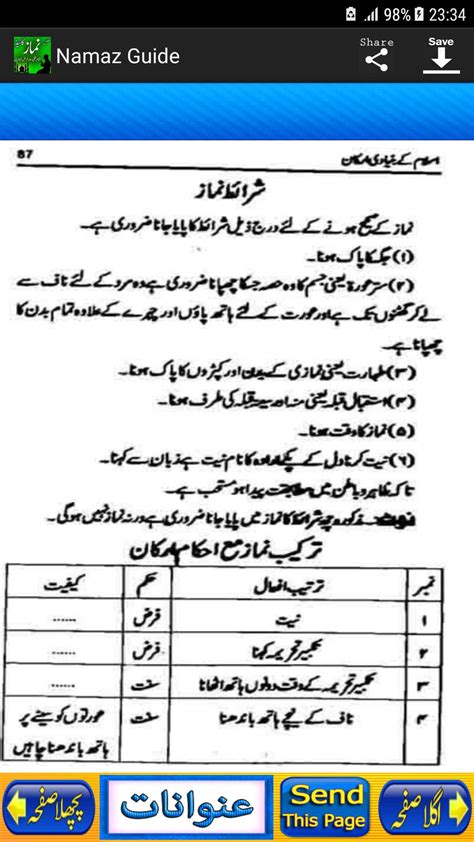 98% 23:34
Namaz Guide
Share
Save
87
اسلام کے بنیادی ارکان
شرائط نماز
نماز کے صحیح ہونے کے لئے درج ذیل شرائط کا پایا جانا ضروری ہے۔
(۱) جگہ کا پاک ہونا۔
(۲) ستر عورة یعنی جسم کا وہ حصہ جسکا چھپانا ضروری ہے وہ مرد کے لئے ناف سے
لے کر گھٹنوں تک ہے اور عورت کے لئے ہاتھ پاؤں اور چہرے کے علاوہ تمام بدن کا
چھپانا ہے۔
(۳) طہارت یعنی نمازی کے بدن اور کپڑوں کا پاک ہونا۔
(۴) استقبال قبلہ یعنی منہ اور سینہ قبلہ کی طرف ہونا۔
(۵) نماز کا وقت ہونا۔
(۶) نیت کرنا دل کے پکے ارادہ کا نام نیت ہے زبان سے کہنا۔
تاکہ ظاہر و باطن میں مطابقت پیدا ہو مستحب ہے۔
نوٹ:۔ مذکورہ چھ شرائط کا نماز میں پایا جانا ضروری ہے ورنہ نماز نہیں ہوگی۔
ترکیب نماز مع احکام ارکان
نمبر ترتیب افعال حکم کیفیت
۱ نیت فرض ......
۲ تکبیر تحریمہ کہنا فرض ......
۳ تکبیر تحریمہ کے وقت دونوں ہاتھ اٹھانا سنت ......
۴ ناف کے نیچے ہاتھ باندھنا سنت عورتوں کو سینے پر
ہاتھ باندھنا چاہیں
پچھلا صفحہ
عنوانات
Send
This Page
اگلا صفحہ